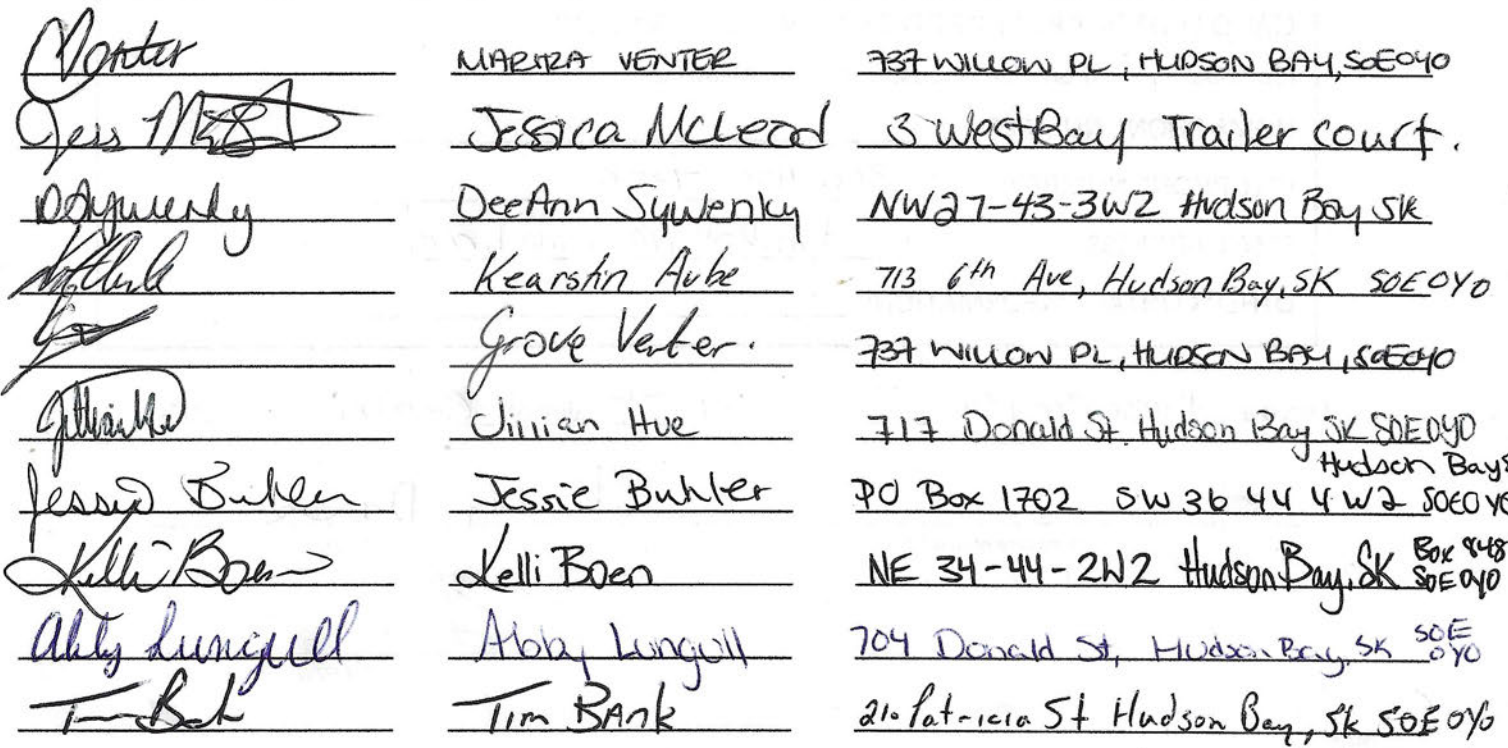 MARITZA VENTER 737 WILLOW PL, HUDSON BAY, S0E0Y0
Jess Jessica McLeod 3 WestBay Trailer court.
DSywenky DeeAnn Sywenky NW27-43-3W2 Hudson Bay SK
Kearstin Aube 713 6th Ave, Hudson Bay, SK S0E0Y0
Grove Venter. 737 WILLOW PL, HUDSON BAY, S0E0Y0
Jillian Hue 717 Donald St. Hudson Bay SK S0E0Y0
Hudson Bay
Jessie Buhler Jessie Buhler PO Box 1702 SW 36 44 4 W2 S0E0Y0
Kelli Boen Kelli Boen NE 34-44-2W2 Hudson Bay, SK Box 848 S0E0Y0
Abby Lungull Abby Lungull 704 Donald St, Hudson Bay, SK S0E 0Y0
Tim Bank Tim BAnk Patricia St Hudson Bay, SK S0E 0Y0